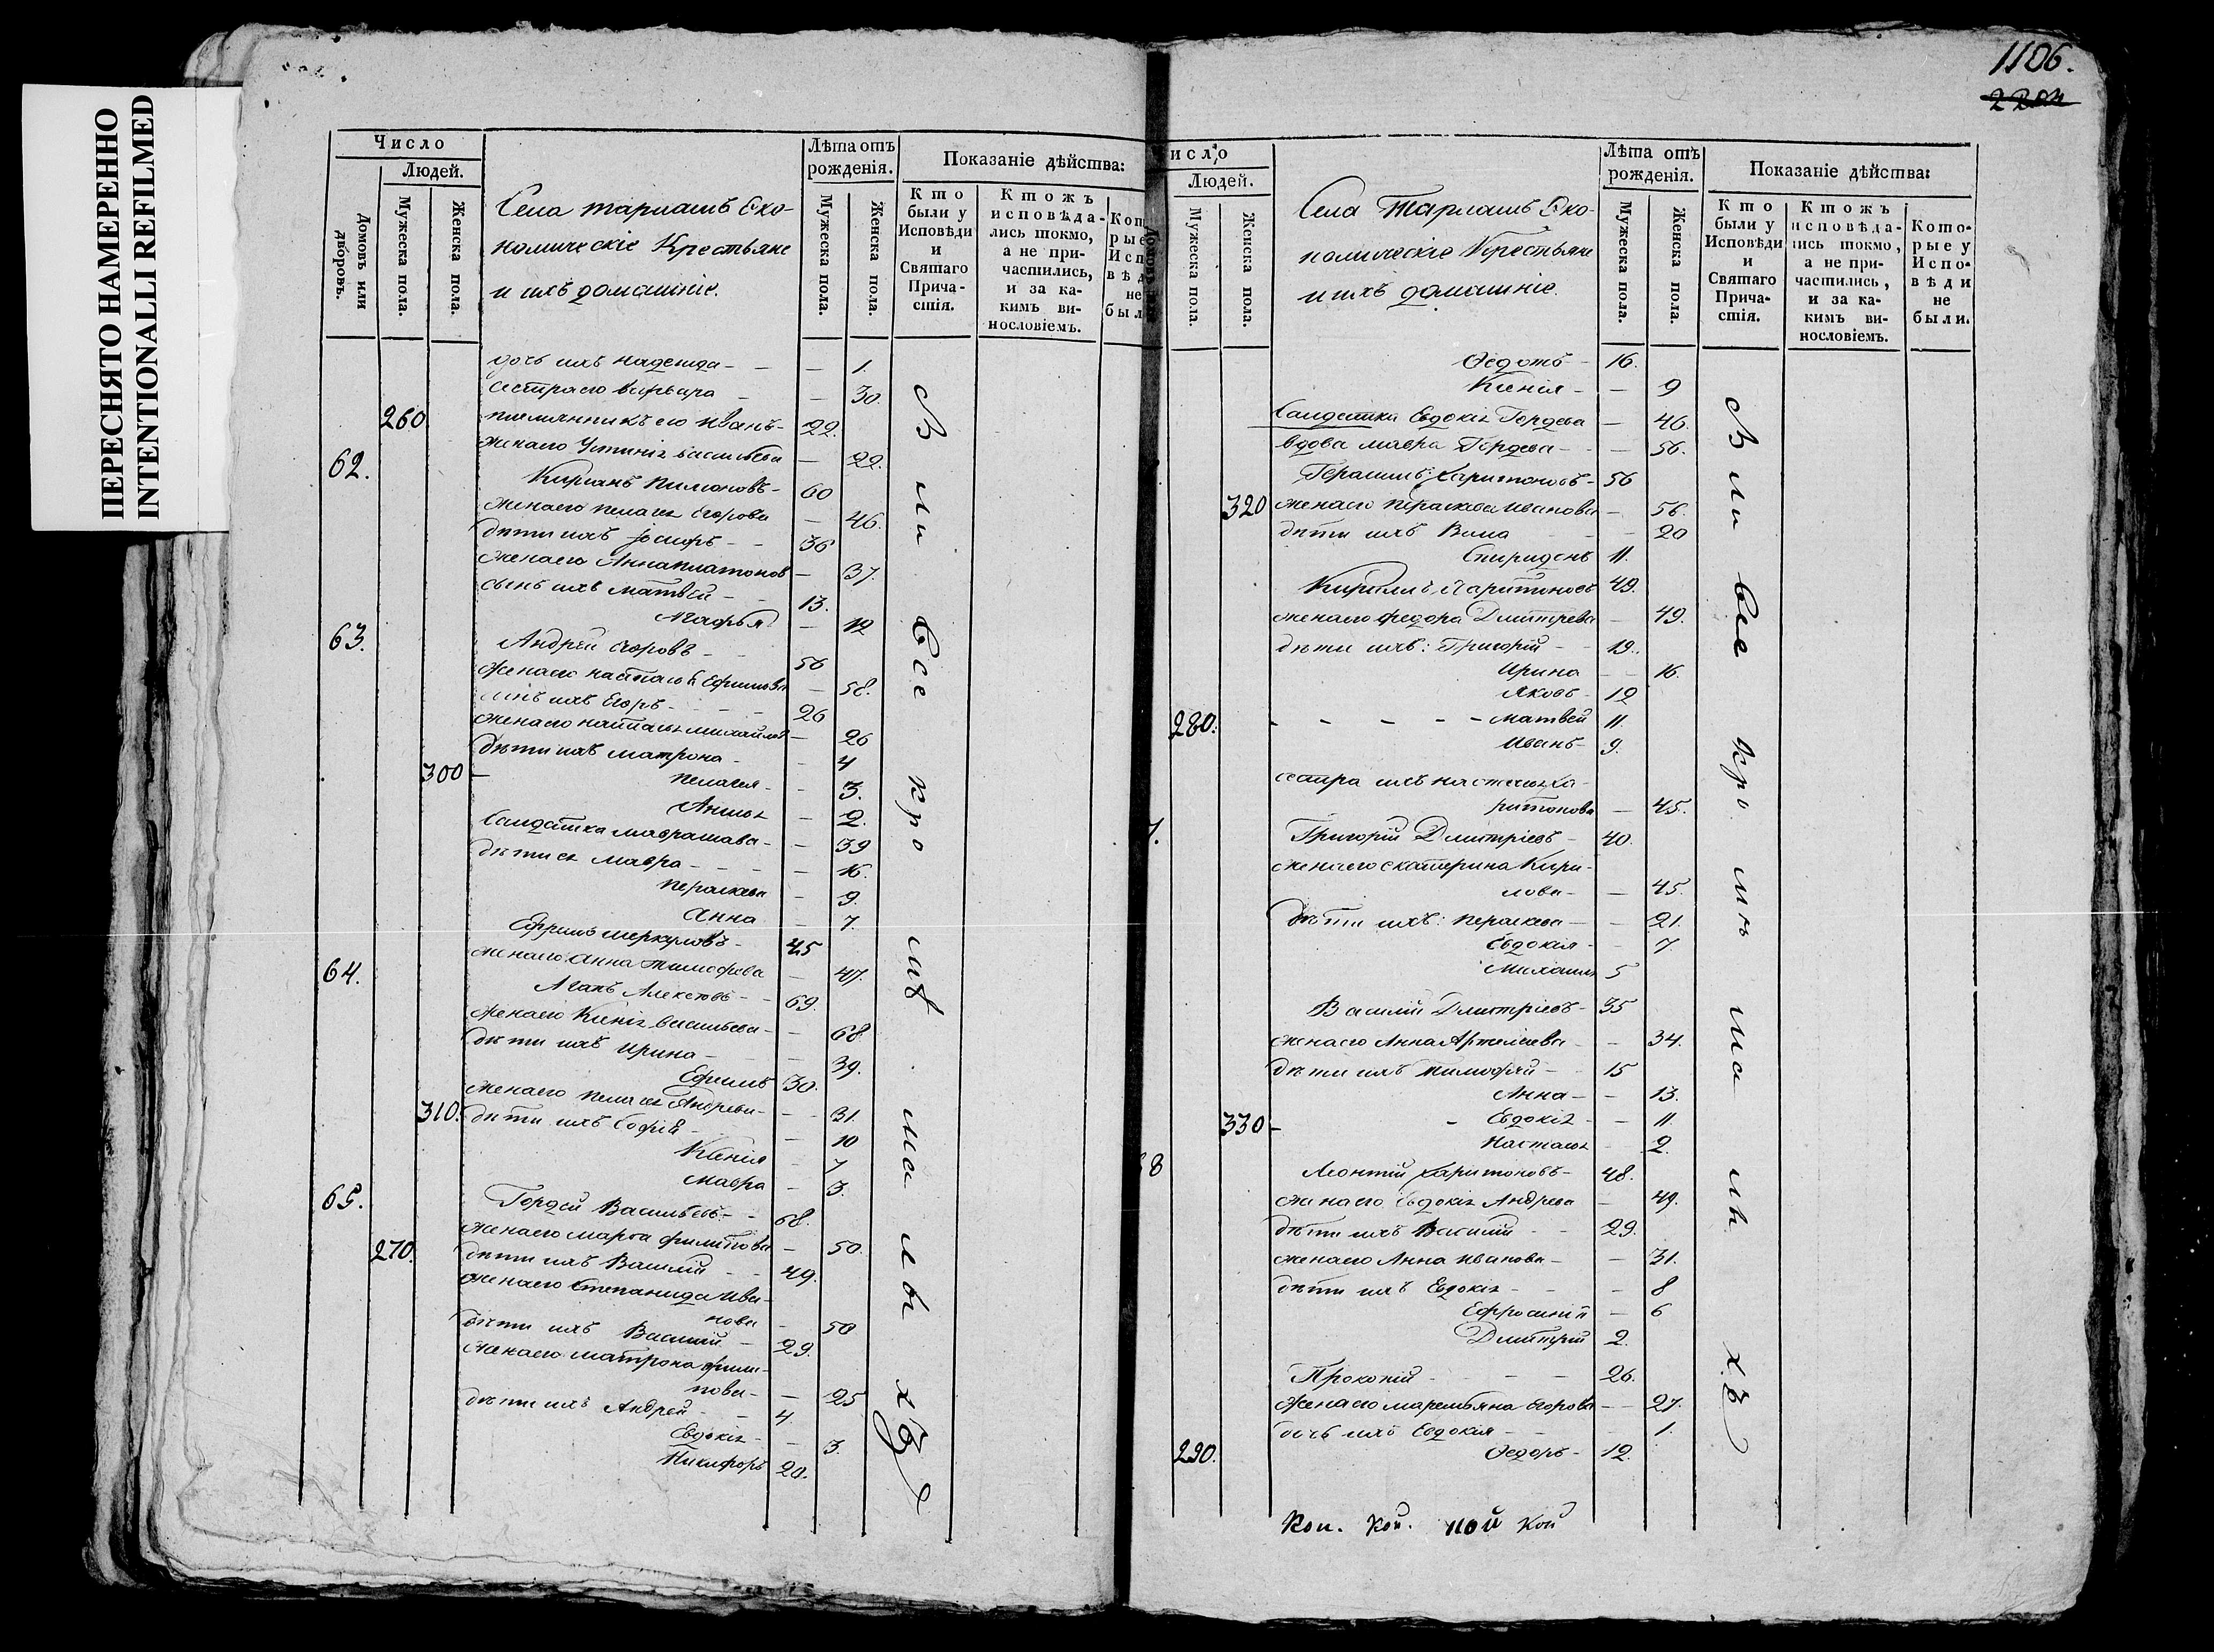 ПЕРЕСНЯТО НАМЕРЕННО
INTENTIONALLI REFILMED
Число
Людей.
Домовъ или дворовъ.
Мужеска пола.
Женска пола.
Села Тарлашъ Эко-
номическіе Крестьяне
и ихъ домашніе.
Лѣта отъ рожденія.
Мужеска пола.
Женска пола.
Показаніе дѣйства:
Кто были у Исповѣди и Святаго Прича-стія.
Ктожъ исповѣда-лись токмо, а не при-частились, и за ка-кимъ ви-нословіемъ.
дочь ихъ Надежда - - - 1.
сестра его Варвара - - 30.
260 племянникъ его Иванъ - 22.
жена его Устинія Васильева - 22.
62. Кирианъ Пимоновъ - 60
жена его Пелагея Егорова - 46.
дѣти ихъ Іосифъ - - 36
жена его Анна Платонов - 37.
сынъ ихъ Матвѣй - - 13.
Агафья - 12
63. Андрей Егоровъ - - 56
жена его Настасья Ефимова - 58.
сынъ ихъ Егоръ - - - 26
жена его Наталья Михайлов - 26
дѣти ихъ Матрона - - 4
300 - Пелагея - - 3.
Анисья - 2.
Салдатка Мавра - - 39
дѣти ея Мавра - - - 16.
Пераскева - 9.
Анна - 7.
Ефримъ Меркуловъ - 45
жена его Анна Тимофеева - 47.
64. Агапъ Алексѣевъ - - 69.
жена его Ксенія Васильева - - 68.
дѣти ихъ Ирина - - - 39.
Ефимъ 30.
жена его Пелагея Андреева - - 31.
310. дѣти ихъ Софія - - 10
Ксенія - 7
Мавра - 3.
65. Гордей Васильевъ - - 68.
жена его Марѳа Филипова - 50.
270. дѣти ихъ Василій - - 49.
жена его Степанида Ива-
нова - 50
дѣти ихъ Василій - 29.
жена его Матрона Фили-
пова - - 25
дѣти ихъ Андрей - - 4.
Евдокія - - 3.
Никифоръ 20.
Были все
1106.
исло
Людей.
Мужеска пола.
Женска пола.
Села Тарлашъ Эко-
номическіе Крестьяне
и ихъ домашніе.
Лѣта отъ рожденія.
Мужеска пола.
Женска пола.
Показаніе дѣйства:
Кто были у Исповѣди и Святаго Прича-стія.
Ктожъ исповѣда-лись токмо, а не при-частились, и за ка-кимъ ви-нословіемъ.
Кото-рые у Испо-вѣди не были.
Ѳедотъ - 16.
Ксенія - - 9
Салдатка Евдокія Гордеева - 46.
вдова Мавра Гордеева - - - 56.
Герасимъ Харитоновъ - 56
320 жена его Пераскева Иванова - 56.
дѣти ихъ - - - 20
Спиридонъ 11.
Кирилъ Харитоновъ 49.
жена его Федора Дмитрева - 49.
дѣти ихъ: Григорій - - 19.
Ирина - - 16.
Яковъ - 12
280. - - - - - Матвей 11.
Иванъ - 9.
сестра ихъ Настасья Ха-
ритонова - 45.
7. Григорій Дмитріевъ - 40.
жена его Екатерина Кири-
лова - - 45.
дѣти ихъ: Пераскева - - 21.
Евдокія - - 7.
Михаилъ 5
Василій Дмитріевъ - 35
жена его Анна Артемева - - 34.
дѣти ихъ Тимофѣй - - 15
Анна - - 13.
330 - - Евдокія - - 11.
Настасья - 2.
8 Леонтій Харитоновъ - 48.
жена его Евдокія Андреева - 49.
дѣти ихъ Василій - - 29.
жена его Анна Иванова - - 31.
дѣти ихъ Евдокія - - - 8
Ефросинія - 6
Дмитрій 2.
Прокопій - - - - 26.
жена его Маремьяна Егорова - - 27.
дочь ихъ Евдокія - - 1.
290. Ѳедоръ - 12.
Были все